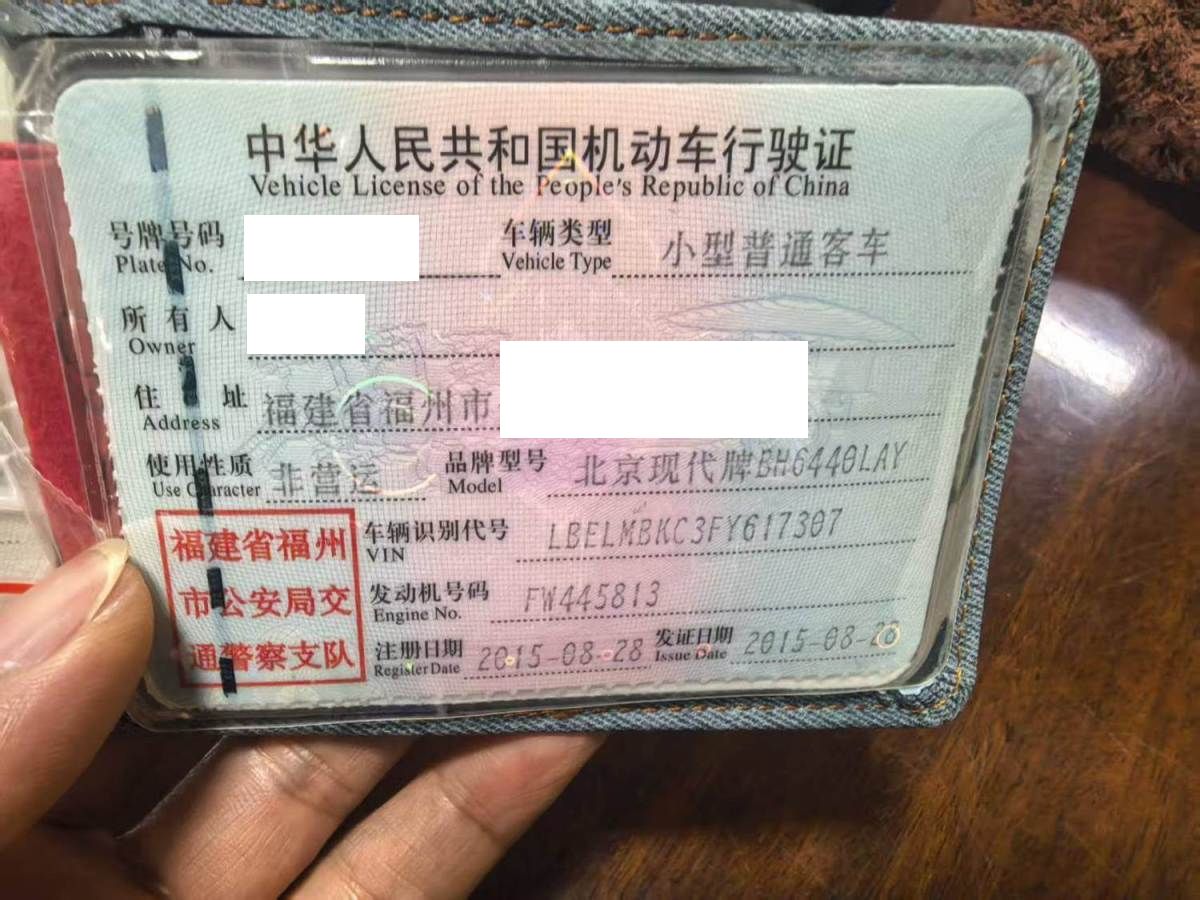 中华人民共和国机动车行驶证
Vehicle License of the People's Republic of China
号牌号码
Plate No.
车辆类型 小型普通客车
Vehicle Type
所有人
Owner
住址 福建省福州市
Address
使用性质 非营运
Use Character
品牌型号 北京现代牌BH6440LAY
Model
车辆识别代号 LBELMBKC3FY617307
VIN
发动机号码 FW445813
Engine No.
注册日期 2015-08-28
Register Date
发证日期 2015-08-28
Issue Date
福建省福州
市公安局交
通警察支队